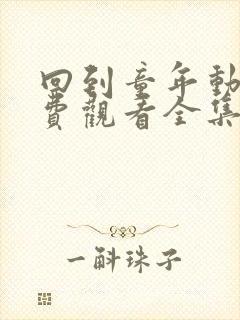 回到童年動
費觀看全集
一斛珠子